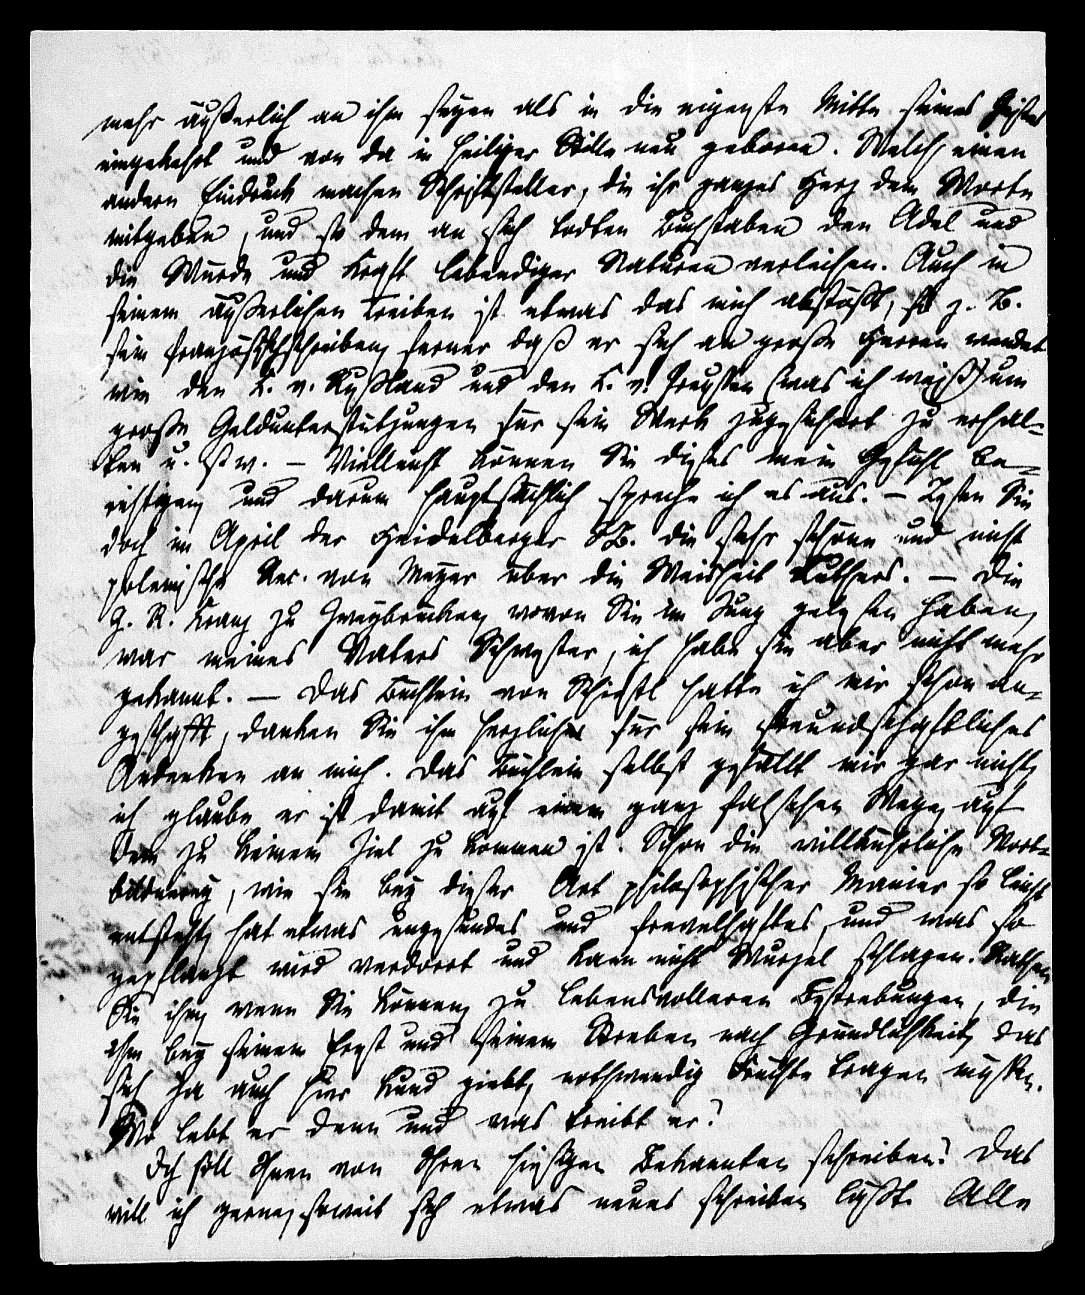 mehr äußerlich an ihm seyen als in die eigenste Mitte seines Geistes
eingekehrt und von da in heiliger Stille neu geboren. Welch einen
andern Eindruck machen Schriftsteller, die ihr ganzes Herz dem Worte
mitgeben, und so dem an sich todten Buchstaben den Adel und
die Würde und Kraft lebendiger Naturen verleihen. Auch in
seinem äußerlichen Treiben ist etwas das mich abstößt, so z. B.
sein Französischschreiben, ferner daß er sich an große Herren wendet
wie den K. v. Rußland und den K. v. Preussen (was ich weiß) um
große Geldunterstützungen für sein Werk zugesichert zu erhal-
ten u. s. w. – Vielleicht können Sie dieses mein Gefühl be-
richtigen, und darum hauptsächlich spreche ich es aus. – Lesen Sie
doch im April der Heidelberger JB. die sehr schöne und nicht
polemische Rec. von Meyer über die Weisheit Luthers. – Die
G. R. Kranz zu Zweybrücken, wovon Sie im Jung gelesen haben,
war meines Vaters Schwester, ich habe sie aber nicht mehr
gekannt. – Das Büchlein von Schiestl hatte ich mir schon an-
geschafft, danken Sie ihm herzlichst für sein freundschaftliches
Andenken an mich. Das Büchlein selbst gefällt mir gar nicht,
ich glaube er ist damit auf einem ganz falschen Wege, auf
dem zu keinem Ziel zu kommen ist. Schon die willkührliche Wort-
bildnerey, wie sie bey dieser Art philosophischer Manier so leicht
entsteht, hat etwas ungesundes und frevelhaftes, und was so
gepflanzt wird verdorrt und kann nicht Wurzel schlagen. Rathen
Sie ihm, wenn Sie können, zu lebensvolleren Bestrebungen, die
ihm bey seinem Ernst und seinem Streben nach Gründlichkeit, das
sich ja auch hier kund giebt, nothwendig Früchte tragen müssen.
Wo lebt er denn und was treibt er?
Ich soll Ihnen von Ihren hiesigen Bekannten schreiben? Das
will ich gerne, soweit sich etwas neues schreiben läßt. Alle